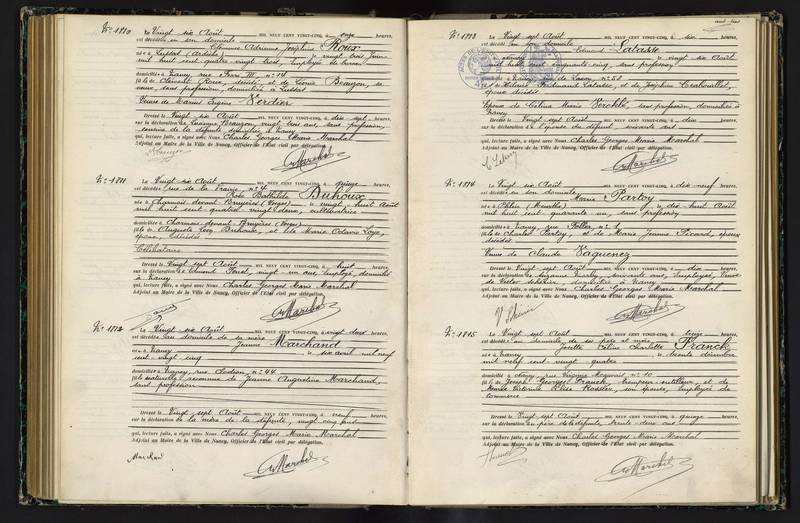 N° 1810 Le Vingt six Août MIL NEUF CENT VINGT-CINQ, à onze heures,
est décédée en son domicile
Clémence Adrienne Joséphine Roux
née à Lussas (Ardèche) le vingt trois Juin
mil huit cent quatre vingt trois, Employée de bureau
domiciliée à Nancy, rue n° 14
fille de Clément Roux, décédé, et de Léonie Brauzon, sa
veuve, sans profession, domiciliée à Lussas
Veuve de Marius Eugène Verdier
Dressé le Vingt six Août MIL NEUF CENT VINGT-CINQ, à dix sept heures,
sur la déclaration de Brauzon, vingt trois ans, sans profession,
cousine de la défunte, domiciliée à Nancy
qui, lecture faite, a signé avec Nous Charles Georges Marie Marchal
Adjoint au Maire de la Ville de Nancy, Officier de l'État civil par délégation.
N° 1811 Le Vingt six Août MIL NEUF CENT VINGT-CINQ, à quinze heures,
est décédée rue de la Prairie n° 4
Rose Bathilde Buhoux
née à Charmois devant Bruyères (Vosges) le vingt huit Août
mil huit cent quatre vingt deux, cultivatrice
domiciliée à Charmois devant Bruyères (Vosges)
fille de Auguste Léon Buhoux, et de Marie Octavie
époux décédés
Célibataire
Dressé le Vingt sept Août MIL NEUF CENT VINGT-CINQ, à huit heures,
sur la déclaration de Edmond vingt un ans, employé, domicilié
à Nancy
qui, lecture faite, a signé avec Nous Charles Georges Marie Marchal
Adjoint au Maire de la Ville de Nancy, Officier de l'État civil par délégation.
N° 1812 Le Vingt six Août MIL NEUF CENT VINGT-CINQ, à vingt deux heures,
est décédée au domicile de sa mère
Jeanne Marchand
née à Nancy le six avril mil neuf
cent vingt cinq
domiciliée à Nancy, rue Clodion, n° 44
fille naturelle reconnue de Jeanne Augustine Marchand,
sans profession
Dressé le Vingt sept Août MIL NEUF CENT VINGT-CINQ, à neuf heures,
sur la déclaration de la mère de la défunte, vingt cinq ans
qui, lecture faite, a signé avec Nous Charles Georges Marie Marchal
Adjoint au Maire de la Ville de Nancy, Officier de l'État civil par délégation.
Marchand
N° 1813 Le Vingt sept Août MIL NEUF CENT VINGT-CINQ, à six heures,
est décédé en son domicile
Edmond Latasse
né à Nancy le vingt six Août
mil huit cent soixante cinq, sans profession
domicilié à Nancy, n° 58
fils de Ferdinand Latasse, et de Joséphine
époux décédés
Epoux de Célina Marie sans profession, domiciliée à
Nancy
Dressé le Vingt sept Août MIL NEUF CENT VINGT-CINQ, à dix heures,
sur la déclaration de l'épouse du défunt, soixante ans
qui, lecture faite, a signé avec Nous Charles Georges Marie Marchal
Adjoint au Maire de la Ville de Nancy, Officier de l'État civil par délégation.
N° 1814 Le Vingt six Août MIL NEUF CENT VINGT-CINQ, à dix neuf heures,
est décédée en son domicile
Marie Partoy
née à (Meurthe) le dix huit Août
mil huit cent quarante un, sans profession
domiciliée à Nancy, rue n° 1
fille de Charles Partoy, et de Marie Jeanne Picard, époux
décédés
Veuve de Claude Vaguenez
Dressé le Vingt sept Août MIL NEUF CENT VINGT-CINQ, à dix heures,
sur la déclaration de soixante ans, employé,
domicilié à Nancy
qui, lecture faite, a signé avec Nous Charles Georges Marie Marchal
Adjoint au Maire de la Ville de Nancy, Officier de l'État civil par délégation.
N° 1815 Le Vingt sept Août MIL NEUF CENT VINGT-CINQ, à treize heures,
est décédée au domicile de ses père et mère
Josette Céline Charlotte Franck
née à Nancy le trente décembre
mil neuf cent vingt quatre
domiciliée à Nancy, rue Virginie Mauvais n° 10
fille de Joseph Georges Franck, trempeur-outilleur, et de
Elise Kessler, son épouse, Employée de
commerce
Dressé le Vingt sept Août MIL NEUF CENT VINGT-CINQ, à quinze heures,
sur la déclaration du père de la défunte, trente deux ans
qui, lecture faite, a signé avec Nous Charles Georges Marie Marchal
Adjoint au Maire de la Ville de Nancy, Officier de l'État civil par délégation.